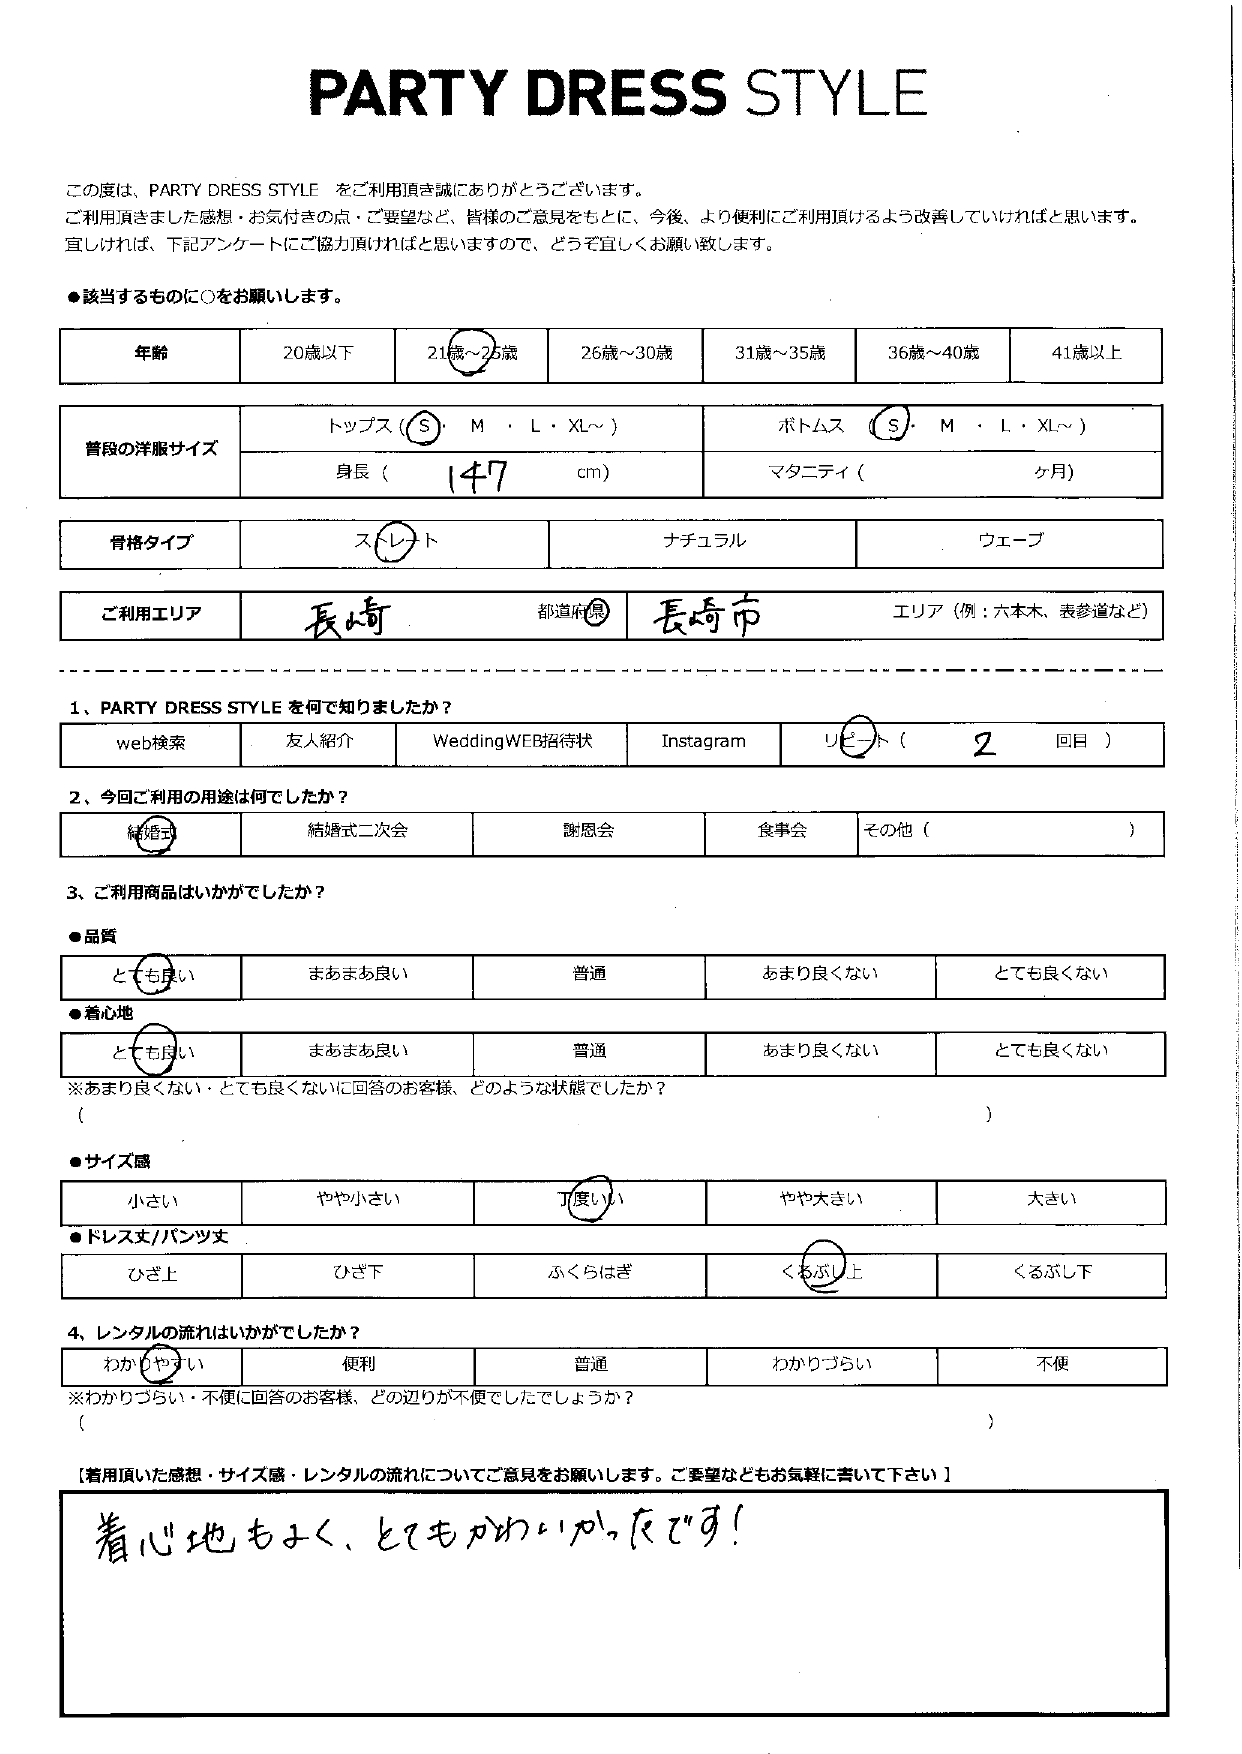 PARTY DRESS STYLE
この度は、PARTY DRESS STYLE　をご利用頂き誠にありがとうございます。
ご利用頂きました感想・お気付きの点・ご要望など、皆様のご意見をもとに、今後、より便利にご利用頂けるよう改善していければと思います。
宜しければ、下記アンケートにご協力頂ければと思いますので、どうぞ宜しくお願い致します。
●該当するものに○をお願いします。
年齢 20歳以下 21歳～25歳 26歳～30歳 31歳～35歳 36歳～40歳 41歳以上
普段の洋服サイズ トップス ( S ・ M ・ L ・ XL～ ) ボトムス ( S ・ M ・ L ・ XL～ )
身長 ( 147 cm) マタニティ ( ヶ月)
骨格タイプ ストレート ナチュラル ウェーブ
ご利用エリア 長崎 都道府県 長崎市 エリア（例：六本木、表参道など）
1、PARTY DRESS STYLE を何で知りましたか？
web検索 友人紹介 WeddingWEB招待状 Instagram リピート ( 2 回目 )
2、今回ご利用の用途は何でしたか？
結婚式 結婚式二次会 謝恩会 食事会 その他 ( )
3、ご利用商品はいかがでしたか？
●品質
とても良い まあまあ良い 普通 あまり良くない とても良くない
●着心地
とても良い まあまあ良い 普通 あまり良くない とても良くない
※あまり良くない・とても良くないに回答のお客様、どのような状態でしたか？
( )
●サイズ感
小さい やや小さい 丁度いい やや大きい 大きい
●ドレス丈/パンツ丈
ひざ上 ひざ下 ふくらはぎ くるぶし上 くるぶし下
4、レンタルの流れはいかがでしたか？
わかりやすい 便利 普通 わかりづらい 不便
※わかりづらい・不便に回答のお客様、どの辺りが不便でしたでしょうか？
( )
【着用頂いた感想・サイズ感・レンタルの流れについてご意見をお願いします。ご要望などもお気軽に書いて下さい 】
着心地もよく、とてもかわいかったです！